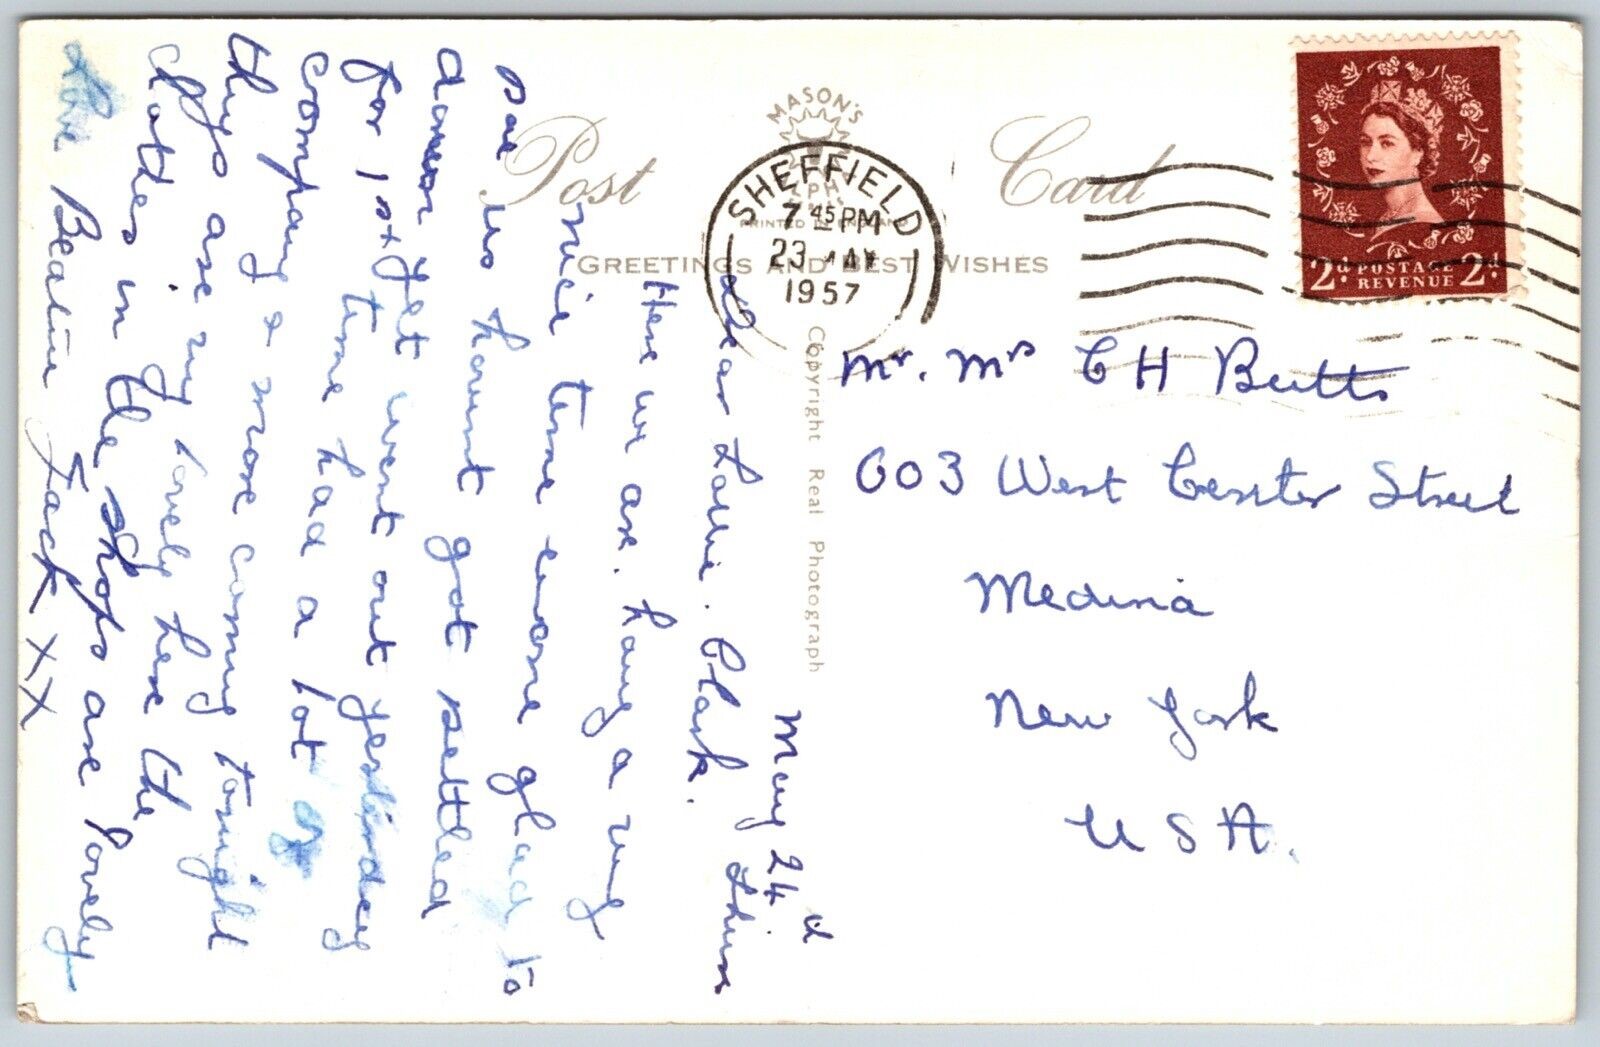 MASON'S
Post Card
PRINTED IN ENGLAND
GREETINGS AND BEST WISHES
Copyright Real Photograph
SHEFFIELD
7 45 PM
23 MAY
1957
2d POSTAGE 2d
REVENUE
Mr. Mrs C H Butts
603 West Center Street
Medina
New York
U S A.
May 24
Dear Louie. Clark.
Here we are. having a very
nice time everyone glad to
see us havent got settled
down yet went out yesterday
for 1st time had a lot of
company & more coming tonight
things are very lovely here the
clothes in the shops are lovely
Love Beatrice Jack XX